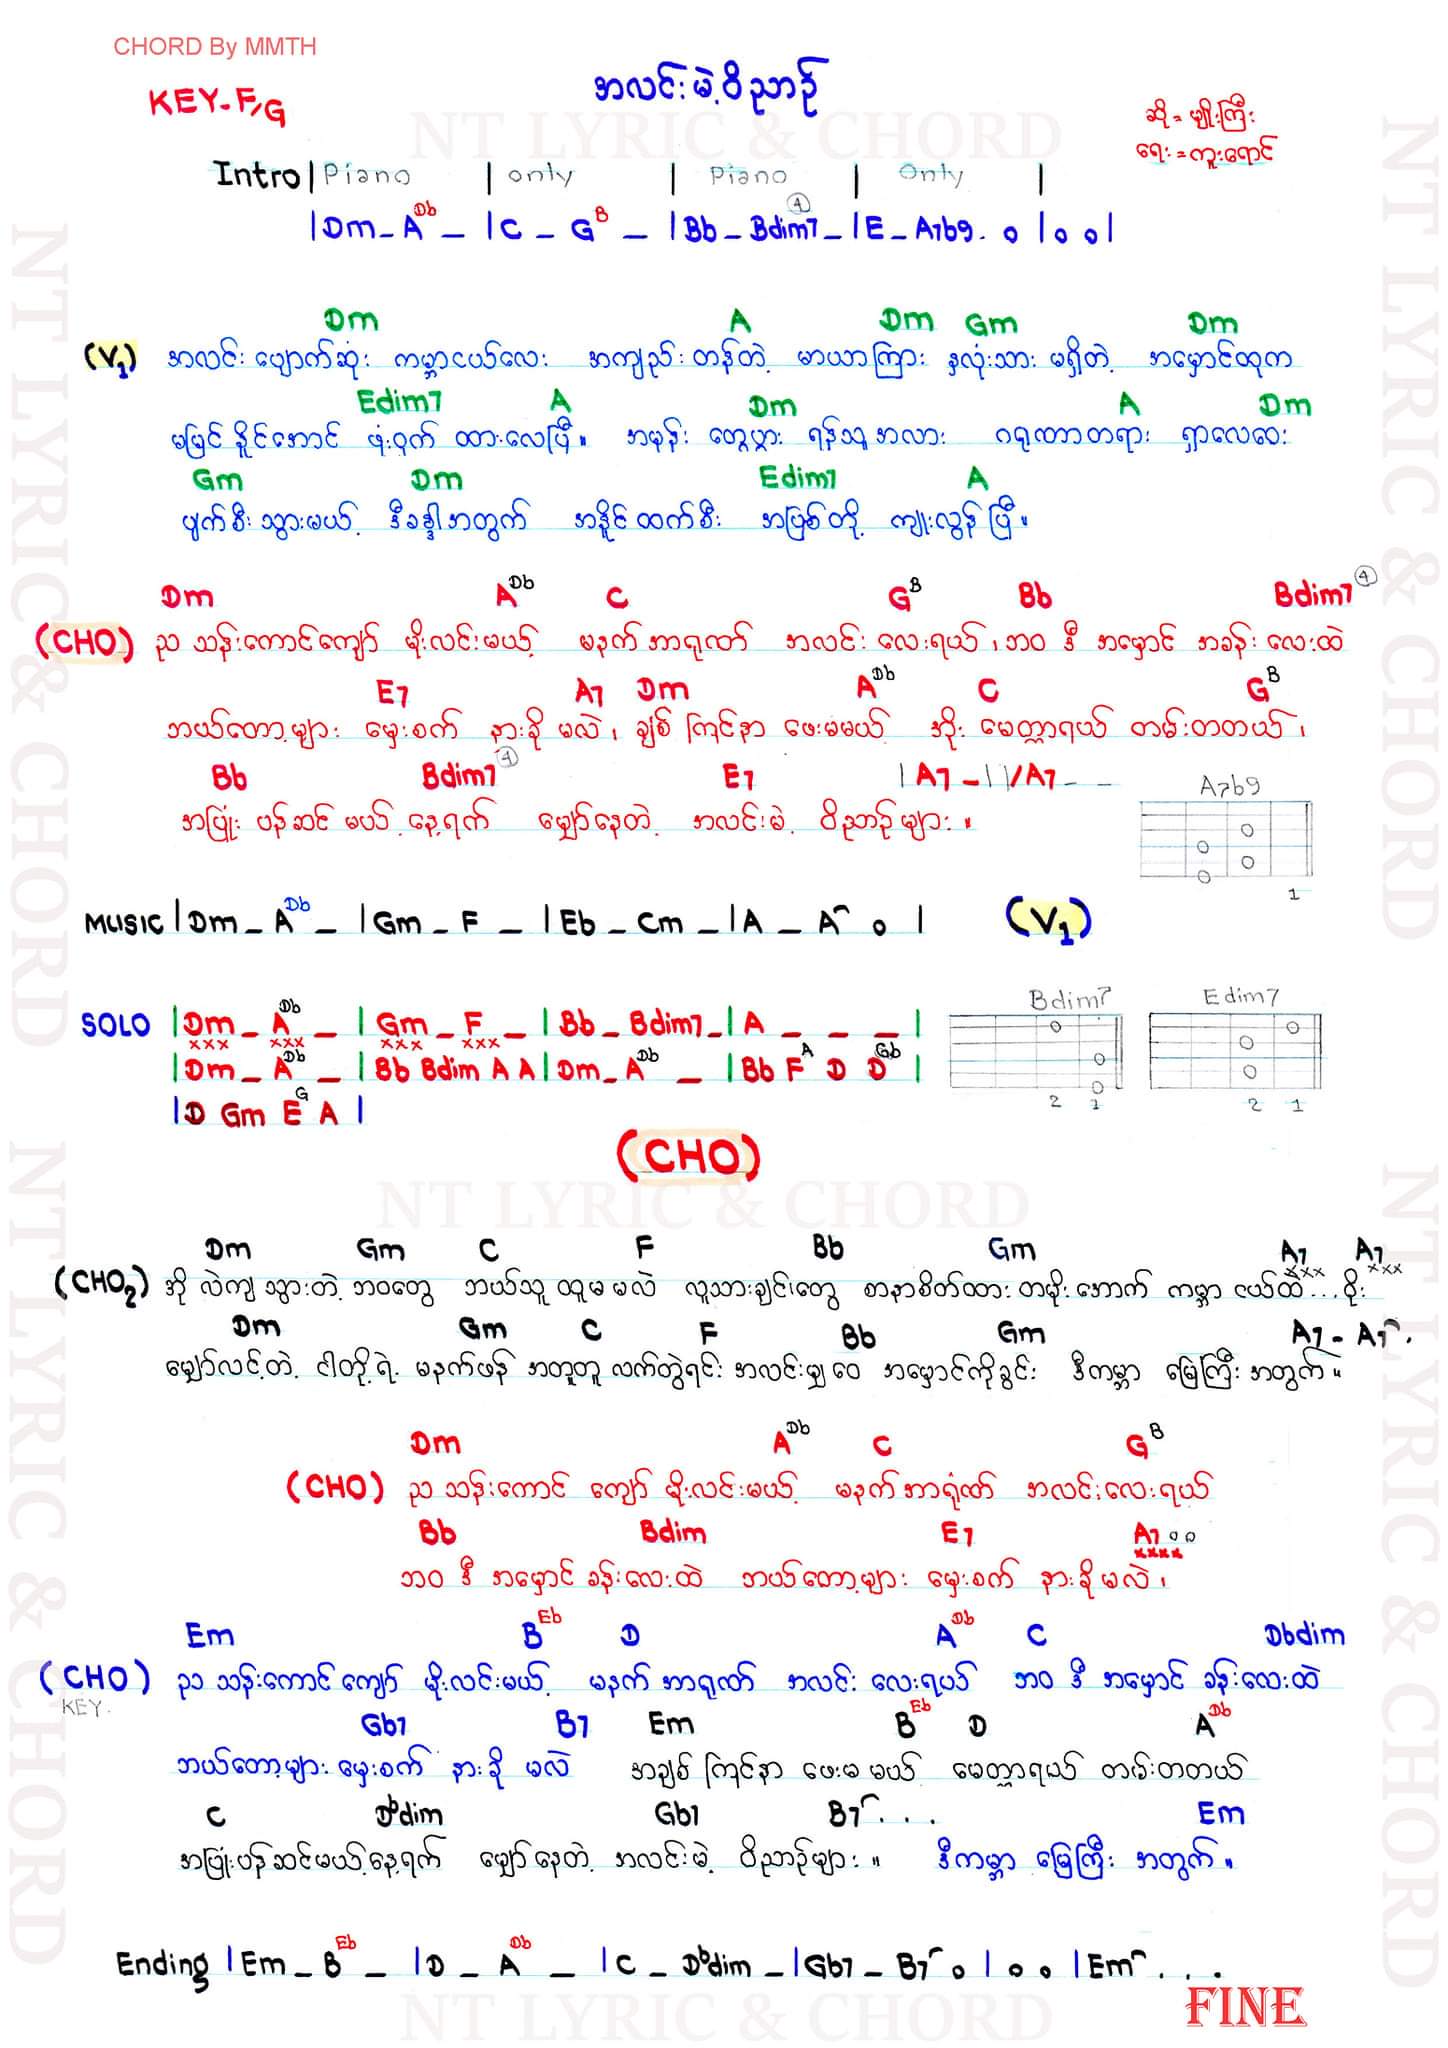 CHORD By MMTH
အလင်းမဲ့ဝိညာဉ်
KEY-F/G
ဆို = မျိုးကြီး
ရေး = ကူးရောင်
NT LYRIC & CHORD
Intro | Piano | only | Piano | Only |
| Dm - A Db - | C - G B - | Bb - Bdim7 ④ - | E - A7b9 . o | o o |
Dm A Dm Gm Dm
(V1) အလင်း ပျောက်ဆုံး ကမ္ဘာငယ်လေး အကျည်းတန်တဲ့ မာယာကြား နှလုံးသား မရှိတဲ့ အမှောင်ထုက
Edim7 A Dm A Dm
မမြင်နိူင်အောင် ဖုံးဝှက် ထားလေပြီ။ အမုန်း တွေပွား ရန်သူအလား ဂရုဏာတရား ရှာလေဝေး
Gm Dm Edim7 A
ပျက်စီးသွားမယ့် ဒီခန္ဓါအတွက် အနိူင်ထက်စီး အပြစ်တို့ ကျူးလွန်ပြီ။
Dm A Db C G B Bb Bdim7 ④
(CHO) ည သန်းကောင်ကျော် မိုးလင်းမယ့် မနက်အာရုဏ် အလင်းလေးရယ်၊ ဘဝ ဒီ အမှောင် အခန်းလေးထဲ
E7 A7 Dm A Db C G B
ဘယ်တော့များ မှေးစက် နားခို မလဲ၊ ချစ်ကြင်နာ ဖေးမမယ့် အိုး မေတ္တာရယ် တမ်းတတယ်၊
Bb Bdim7 ④ E7 | A7 - | | / A7 - -
အပြုံး ပန်ဆင်မယ့်နေ့ရက် မျှော်နေတဲ့ အလင်းမဲ့ ဝိညာဉ်များ။
A7b9
1
MUSIC | Dm - A Db - | Gm - F - | Eb - Cm - | A - A o |
(V1)
SOLO | Dm - A Db - | Gm - F - | Bb - Bdim7 - | A - - - |
xxx xxx xxx xxx
| Dm - A Db - | Bb Bdim A A | Dm - A Db - | Bb F A D D Gb |
| D Gm E G A |
Bdim7
2 1
Edim7
2 1
(CHO)
NT LYRIC & CHORD
Dm Gm C F Bb Gm A7 A7
xxx xxx
(CHO2) အို လဲကျသွားတဲ့ ဘဝတွေ ဘယ်သူထူမ မလဲ လူသားချင်းတွေ စာနာစိတ်ထား တမိုးအောက် ကမ္ဘာ ငယ်ထဲ...ဝိုး
Dm Gm C F Bb Gm A7 - A7 .
မျှော်လင့်တဲ့ ငါတို့ရဲ့ မနက်ဖန် အတူတူလက်တွဲရင်း အလင်းမျှဝေ အမှောင်ကိုခွင်း ဒီကမ္ဘာ မြေကြီးအတွက်။
Dm A Db C G B
(CHO) ည သန်းကောင် ကျော် မိုးလင်းမယ့် မနက်အာရုံဏ် အလင်းလေးရယ်
Bb Bdim E7 A7 o o
xxxx
ဘဝ ဒီ အမှောင် ခန်းလေးထဲ ဘယ်တော့များ မှေးစက် နားခိုမလဲ၊
Em B Eb D A Db C Dbdim
(CHO) ည သန်းကောင်ကျော် မိုးလင်းမယ့် မနက်အာရုဏ် အလင်း လေးရယ် ဘဝ ဒီ အမှောင် ခန်းလေးထဲ
KEY.
Gb7 B7 Em B Eb D A Db
ဘယ်တော့များ မှေးစက် နားခို မလဲ အချစ်ကြင်နာ ဖေးမမယ့် မေတ္တာရယ် တမ်းတတယ်
C Dbdim Gb7 B7 . . . Em
အပြုံးပန်ဆင်မယ့်နေ့ရက် မျှော်နေတဲ့ အလင်းမဲ့ ဝိညာဉ်များ။ ဒီကမ္ဘာ မြေကြီး အတွက်။
Ending | Em - B Eb - | D - A Db - | C - Dbdim - | Gb7 - B7 o | o o | Em . . .
FINE
NT LYRIC & CHORD
NT LYRIC & CHORD
NT LYRIC & CHORD
NT LYRIC & CHORD
NT LYRIC & CHORD